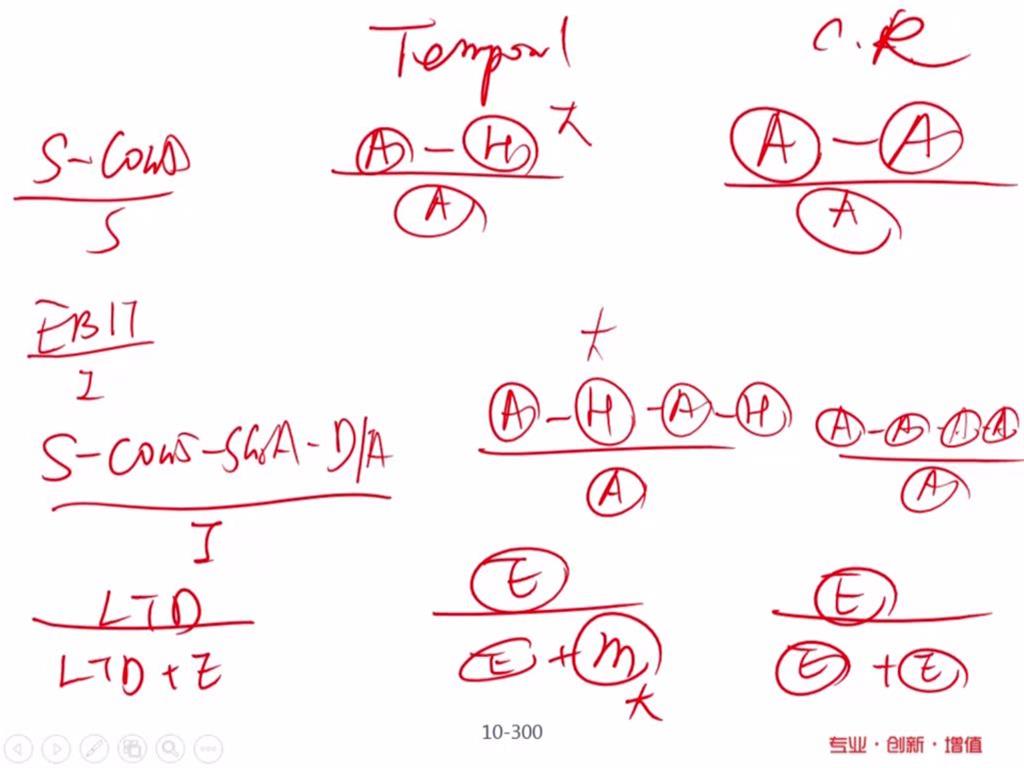 Temporal C.R
S-COGS A - H 大 A - A
S A A
EBIT
I 大
S-COGS-SG&A-D/A A - H - A - H A - A - A - A
I A A
LTD E E
LTD + E E + M E + E
大
10-300
专业·创新·增值